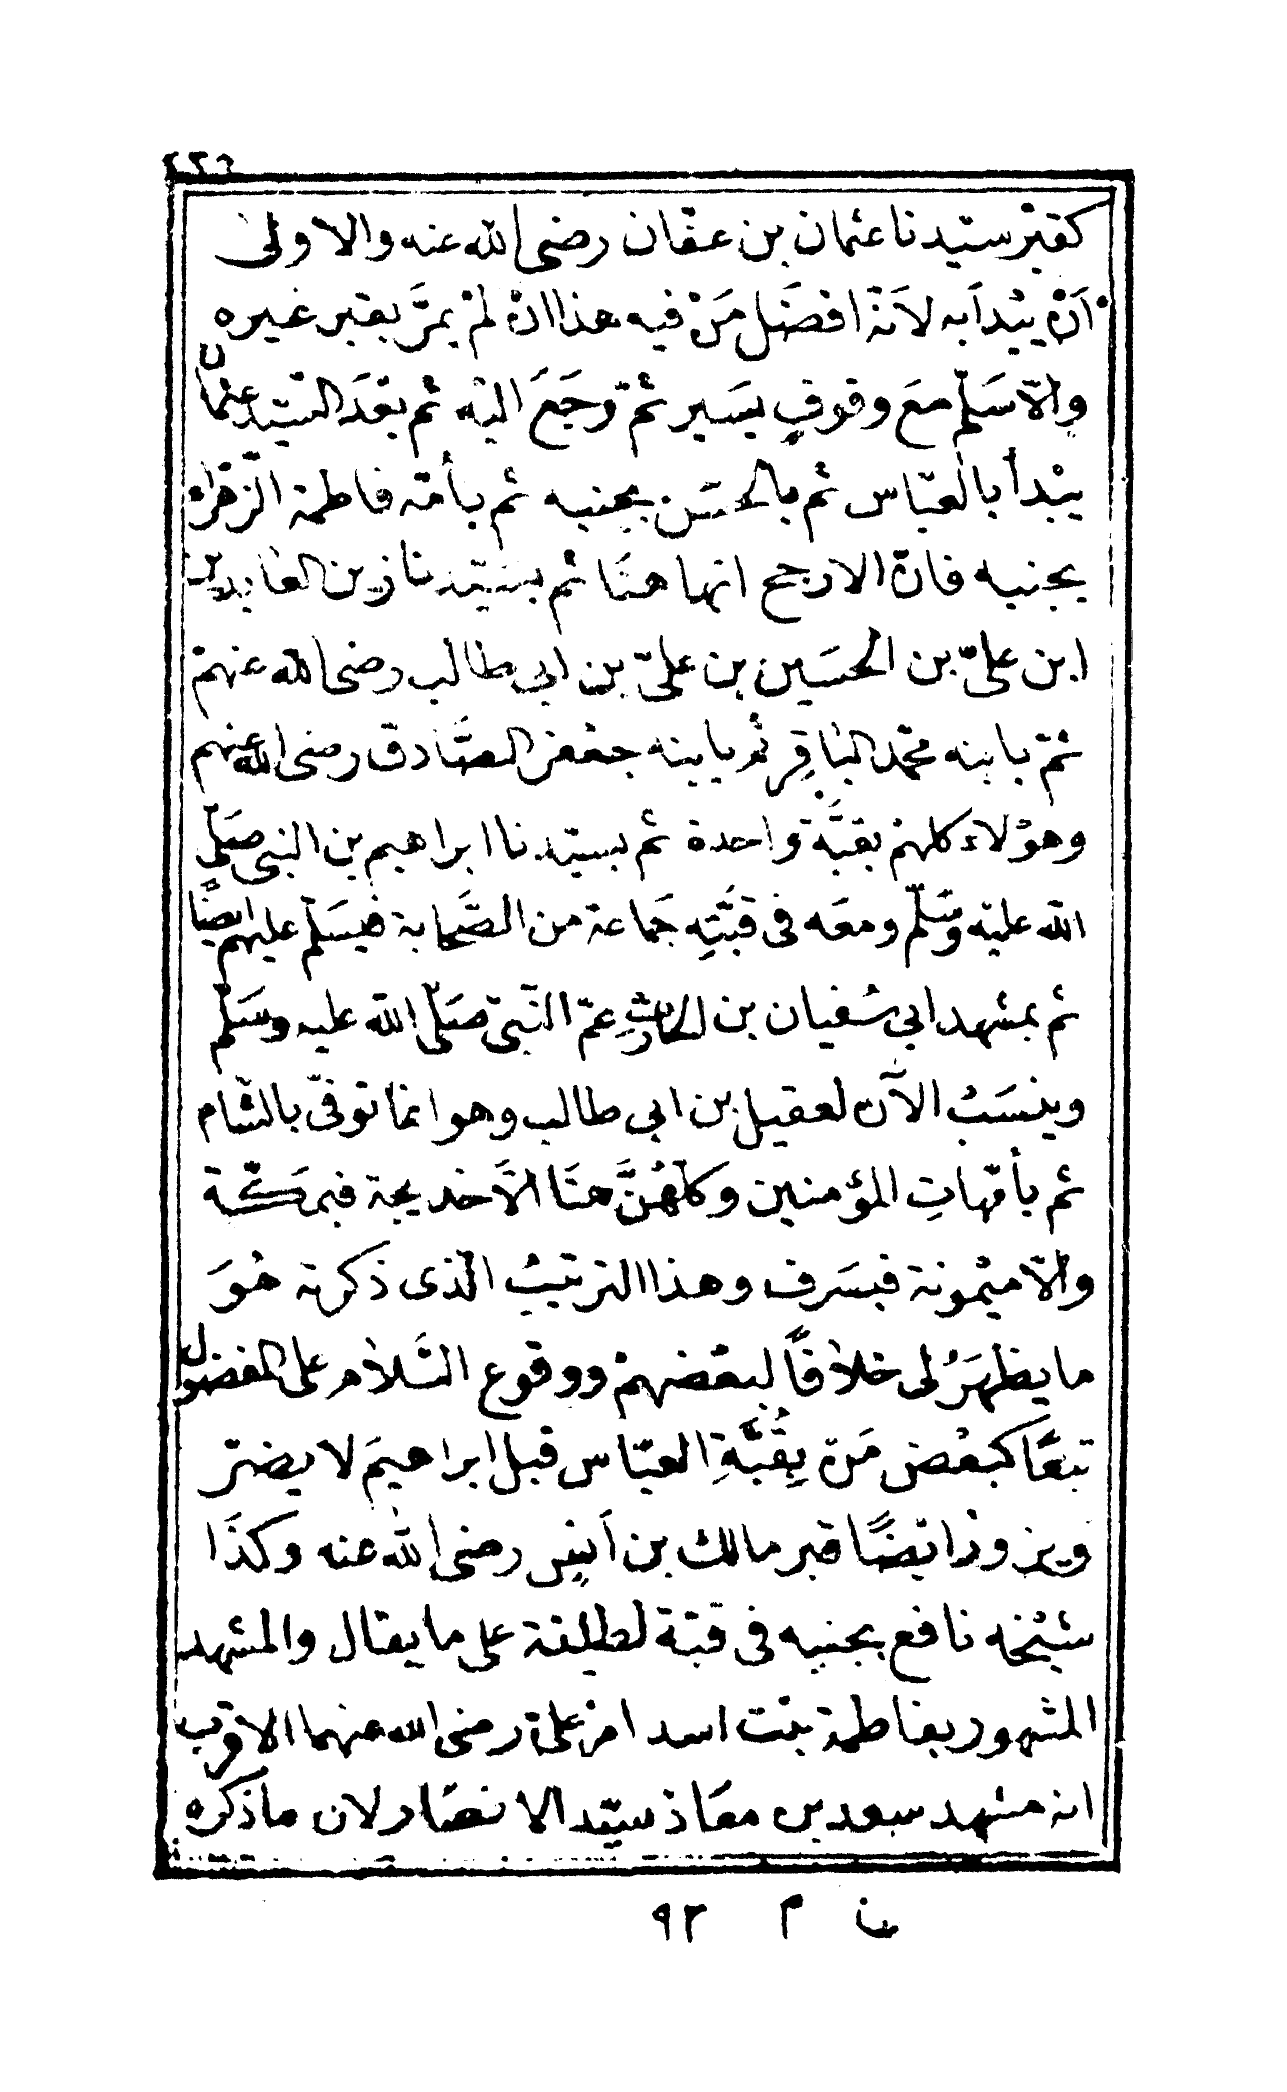 ٤٢٦
كقبر سيّدنا عثمان بن عفّان رضى الله عنه والاولى
اَنْ يبْدأ به لاَنّه افضَل مَنْ فيه هذا ان لمْ يمرَّ بقبر غيره
والاّ سَلّم معَ وقوفٍ يسَير ثمّ رجَعَ اليْه ثم بعْدَ السّيّد عثمان
يبْدأ بالعبّاس ثم بالحسَن بجنبه ثم بأمّه فاطمة الزّهْراء
بجنبه فانّ الارجح انها هنَا ثم بسيّدنا زين العابدين
ابن علىّ بن الحسَين بن علىّ بن ابى طالب رضى الله عنهمْ
ثمّ بابنه محمّد الباقِر ثم بابنه جعْفر الصَّادق رضى الله عنهم
وهؤلاء كلهمْ بقبَّة واحدة ثم بسيّدنا ابراهيم بن النبى صَلّى
الله عليْه وسَلّم ومعَه فى قبَّتِه جَماعة من الصَّحابة فيسَلّم عليهم ايضًا
ثم بمشهد ابى سُفيان بن الحارثِ عمّ النّبىّ صَلّى الله عليه وسَلّم
وينسَبُ الآن لعقيل بن ابى طالب وهو انمّا توفىّ بالشّام
ثم بأمّهاتِ المؤمنين وكلّهُنَّ هنَا الاَّ خديجة فبمَكّة
والاّ ميْمونة فبسَرف وهذا الترتيبُ الّذى ذكرته هُوَ
ما يظهَرُ لى خلافًا لبعْضهمْ ووقوع السَّلام على المفضول
تبعًا كبعْض مَنْ بِقُبَّةِ العبّاس قبل ابراهيمَ لا يضرّ
ويزور ايْضًا قبر مالك بن أنس رضى الله عنه وكذَا
شيْخه نافع بجنبه فى قبّة لطيفة على ما يقال والمشهد
المشهور بفاطمة بنت اسد ام علىّ رضى الله عنهما الاقرب
انه مشهد سعد بن معَاذ سيّد الانصَار لان ماذكره
ن م ٩٣